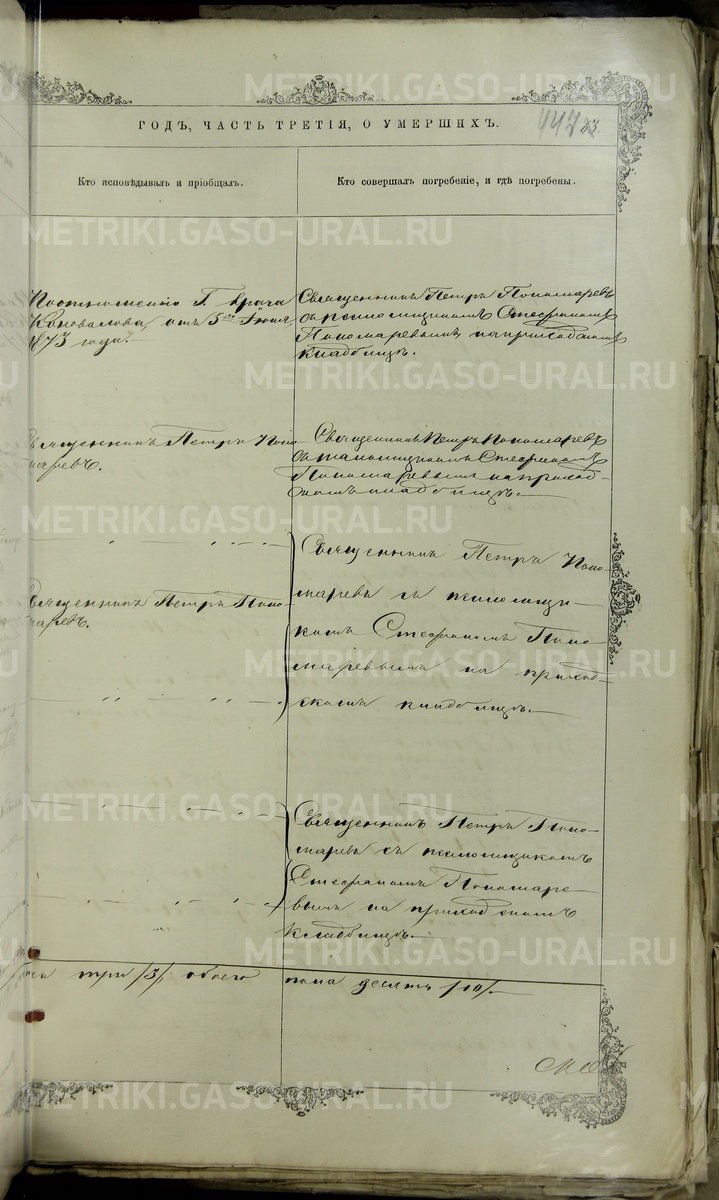 METRIKI.GASO-URAL.RU METRIKI.GASO-URAL.RU
ГОДЪ, ЧАСТЬ ТРЕТІЯ, О УМЕРШИХЪ.
447 83.
Кто исповѣдывалъ и пріобщалъ.
Кто совершалъ погребеніе, и гдѣ погребены.
По отношенію Г. Врача
Коновалова, отъ 5го Іюня
1873 года.
Священникъ Петръ Пономаревъ
съ псаломщикомъ Стефаномъ
Пономаревымъ на приходскомъ
кладбищѣ.
Священникъ Петръ Поно
маревъ.
Священникъ Петръ Пономаревъ
съ псаломщикомъ Стефаномъ
Пономаревымъ на приход-
скомъ кладбищѣ.
Священникъ Петръ Поно
маревъ.
Священникъ Петръ Поно
маревъ съ псаломщи-
комъ Стефаномъ Поно
маревымъ на приход-
скомъ кладбищѣ.
Священникъ Петръ Поно-
маревъ съ псаломщикомъ
Стефаномъ Пономаре
вымъ на приходскомъ
кладбищѣ.
три /3/, обоего пола десять /10/.